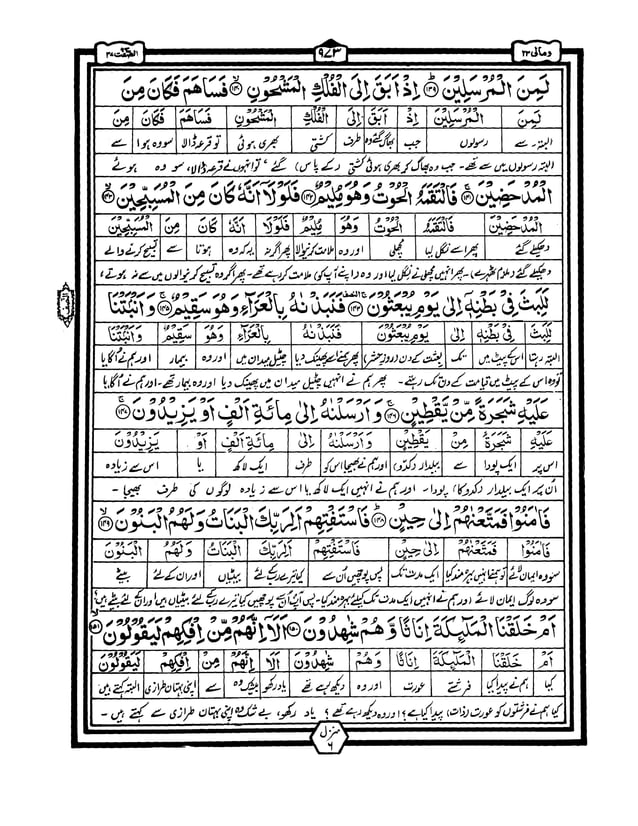 ومالی ٢٣
٩٧٣
الصّٰفّٰت ٣٧
لَمِنَ الْمُرْسَلِيْنَ ۝١٣٩ اِذْ اَبَقَ اِلَى الْفُلْكِ الْمَشْحُوْنِ ۝١٤٠ فَسَاهَمَ فَكَانَ مِنَ
لَمِنَ الْمُرْسَلِيْنَ اِذْ اَبَقَ اِلَى الْفُلْكِ الْمَشْحُوْنِ فَسَاهَمَ فَكَانَ مِنَ
البتہ۔ سے رسولوں جب بھاگ گئے وہ طرف کشتی بھری ہوئی تو قرعہ ڈالا، سو وہ ہوا سے
البتہ رسولوں میں سے تھے۔ جب وہ بھاگ کر بھری ہوئی کشتی (کے پاس) گئے تو انہوں نے قرعہ ڈالا، سو وہ ہوئے
الْمُدْحَضِيْنَ ۝١٤١ فَالْتَقَمَهُ الْحُوْتُ وَهُوَ مُلِيْمٌ ۝١٤٢ فَلَوْلَاۤ اَنَّهٗ كَانَ مِنَ الْمُسَبِّحِيْنَ ۝١٤٣
الْمُدْحَضِيْنَ فَالْتَقَمَهُ الْحُوْتُ وَهُوَ مُلِيْمٌ فَلَوْلَا اَنَّهٗ كَانَ مِنَ الْمُسَبِّحِيْنَ
دھکیلے گئے پھر اسے نگل لیا مچھلی اور وہ ملامت کرنیوالا پھر اگر نہ یہ کہ وہ ہوتا سے تسبیح کرنے والے
دھکیلے گئے (ملزم ٹھہرے)۔ پھر انہیں مچھلی نے نگل لیا اور وہ (اپنے آپ کو) ملامت کر رہے تھے۔ پھر اگر وہ تسبیح کرنیوالوں میں سے نہ ہوتے،
لَلَبِثَ فِيْ بَطْنِهٖۤ اِلٰى يَوْمِ يُبْعَثُوْنَ ۝١٤٤ فَنَبَذْنٰهُ بِالْعَرَآءِ وَهُوَ سَقِيْمٌ ۝١٤٥ وَاَنْۢبَتْنَا
لَلَبِثَ فِيْ بَطْنِهٖ اِلٰى يَوْمِ يُبْعَثُوْنَ فَنَبَذْنٰهُ بِالْعَرَآءِ وَهُوَ سَقِيْمٌ وَاَنْۢبَتْنَا
البتہ رہتا اس کے پیٹ میں تک بعثت کے دن (روزِ حشر) پھر ہم نے اسے پھینک دیا چٹیل میدان میں اور وہ بیمار اور ہم نے اگایا
تو وہ اس کے پیٹ میں قیامت کے دن تک رہتے۔ پھر ہم نے انہیں چٹیل میدان میں پھینک دیا اور وہ بیمار تھے۔ اور ہم نے اُگایا
عَلَيْهِ شَجَرَةً مِّنْ يَّقْطِيْنٍ ۝١٤٦ وَاَرْسَلْنٰهُ اِلٰى مِائَةِ اَلْفٍ اَوْ يَزِيْدُوْنَ ۝١٤٧
عَلَيْهِ شَجَرَةً مِنْ يَقْطِيْنٍ وَاَرْسَلْنٰهُ اِلٰى مِائَةِ اَلْفٍ اَوْ يَزِيْدُوْنَ
اس پر ایک پودا سے بیلدار (کدو) اور ہم نے بھیجا اس کو طرف ایک لاکھ یا اس سے زیادہ
اُن پر ایک بیلدار کدو کا پودا۔ اور ہم نے انہیں ایک لاکھ یا اس سے زیادہ لوگوں کی طرف بھیجا۔
فَاٰمَنُوْا فَمَتَّعْنٰهُمْ اِلٰى حِيْنٍ ۝١٤٨ فَاسْتَفْتِهِمْ اَلِرَبِّكَ الْبَنَاتُ وَلَهُمُ الْبَنُوْنَ ۝١٤٩
فَاٰمَنُوْا فَمَتَّعْنٰهُمْ اِلٰى حِيْنٍ فَاسْتَفْتِهِمْ اَلِرَبِّكَ الْبَنَاتُ وَلَهُمُ الْبَنُوْنَ
سو وہ ایمان لائے تو ہم نے انہیں بہرہ مند کیا ایک مدت تک پس پوچھیں اُن سے کیا تیرے رب کے لئے بیٹیاں اور ان کے لئے بیٹے
سو وہ لوگ ایمان لائے اور ہم نے انہیں ایک مدت تک کیلئے بہرہ مند کیا۔ پس آپ اُن سے پوچھیں کیا تیرے رب کیلئے بیٹیاں ہیں اور ان کے لئے بیٹے ہیں؟
اَمْ خَلَقْنَا الْمَلٰٓئِكَةَ اِنَاثًا وَّهُمْ شٰهِدُوْنَ ۝١٥٠ اَلَاۤ اِنَّهُمْ مِّنْ اِفْكِهِمْ لَيَقُوْلُوْنَ ۝١٥١
اَمْ خَلَقْنَا الْمَلٰٓئِكَةَ اِنَاثًا وَّهُمْ شٰهِدُوْنَ اَلَا اِنَّهُمْ مِنْ اِفْكِهِمْ لَيَقُوْلُوْنَ
کیا ہم نے پیدا کیا فرشتے عورت اور وہ دیکھ رہے تھے یاد رکھو بیشک وہ سے اپنی بہتان طرازی البتہ کہتے ہیں
کیا ہم نے فرشتوں کو عورت (ذات) پیدا کیا ہے؟ اور وہ دیکھ رہے تھے؟ یاد رکھو، بے شک وہ اپنی بہتان طرازی سے کہتے ہیں۔
منزل
٦